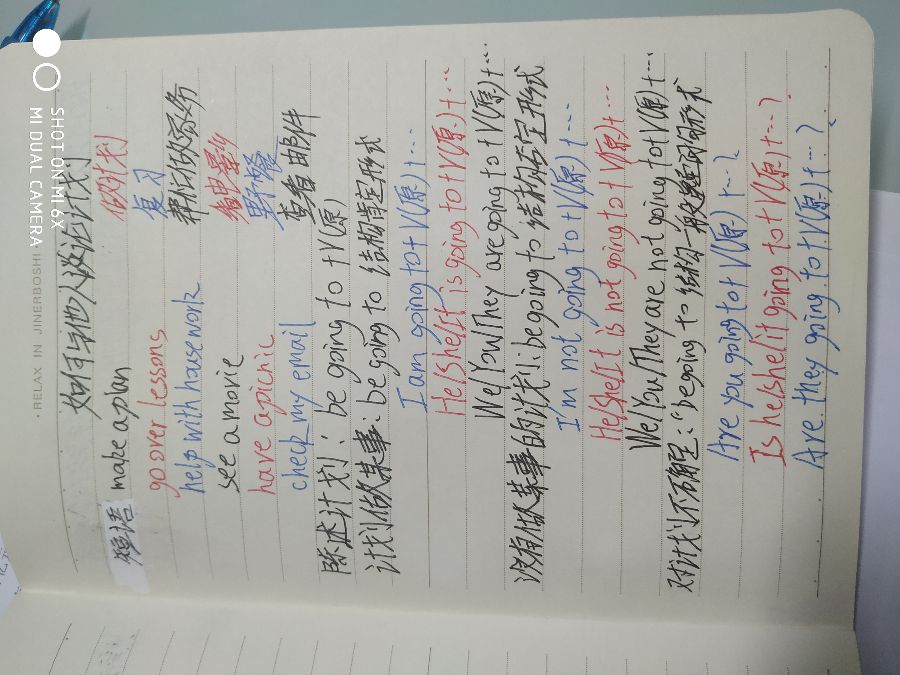 如何与他人谈论计划
短语 make a plan 做计划
go over lessons 复习
help with hasework 帮忙做家务
see a movie 看电影
have a picnic 野餐
check my email 查看邮件
陈述计划: be going to +V(原)
计划做某事: be going to 结构肯定形式
I am going to+V(原)+…
He/she/It is going to+V(原)+…
We/You/They are going to+V(原)+…
没有做某事的计划: be going to 结构否定形式
I'm not going to+V(原)+…
He/she/It is not going to+V(原)+…
We/You/They are not going to+V(原)+…
对计划不确定: be going to 结构一般疑问形式
Are you going to+V(原)+…?
Is he/she/it going to+V(原)+…?
Are they going to+V(原)+…?
RELAX IN JINERBOSHI
SHOT ON MI 6X
MI DUAL CAMERA